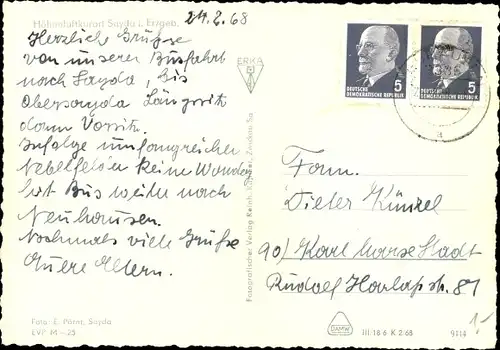 Höhenluftkurort Sayda i. Erzgeb.
24.2.68
Herzliche Grüße
von unserer Busfahrt
nach Sayda, bis
Obersayda
dann
Infolge umfangreicher
Nebelfelder keine Wander
Bus weiter nach
Neuhausen.
Nochmals viele Grüße
Eltern.
Foto: E. Pürnt, Sayda
EVP M -.25
ERIKA
Fotografischer Verlag Reinh.
5
DEUTSCHE
DEMOKRATISCHE REPUBLIK
5
DEUTSCHE
DEMOKRATISCHE REPUBLIK
a
Fam.
Dieter Künzel
90) Karl Marx Stadt
Rudolf Harlaß str. 81
DAMW
III-18-6 K 2/68
9114
1,-